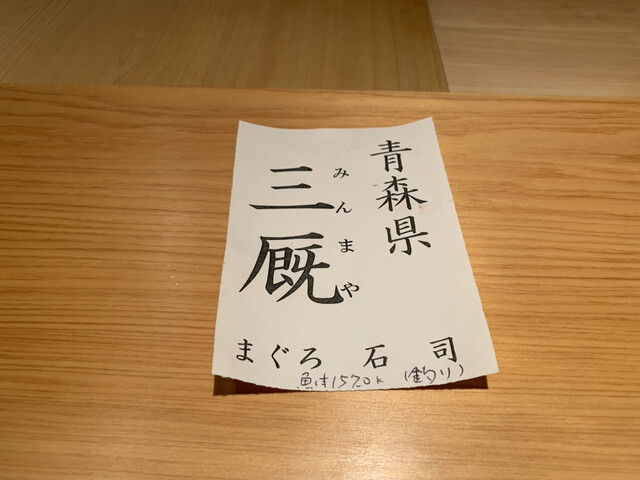 青森県
三厩
みんまや
まぐろ 石司
魚体157.0k (釣り)